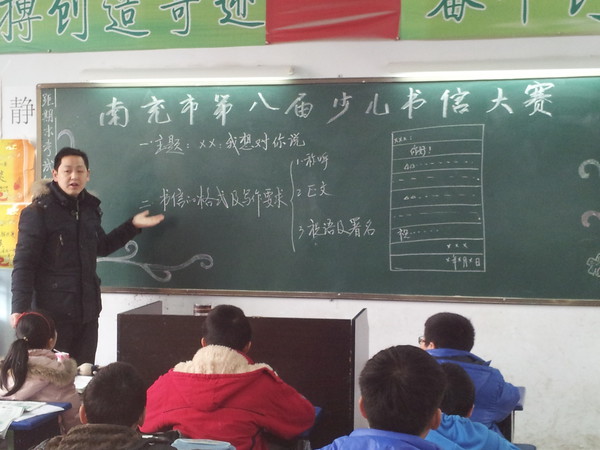 搏创造奇迹
奋
静
距期末考试
南充市第八届少儿书信大赛
一·主题：××，我想对你说
二 书信的格式及写作要求
1·称呼
2 正文
3 祝语及署名
×××：
你好！
祝
×××
×年×月×日